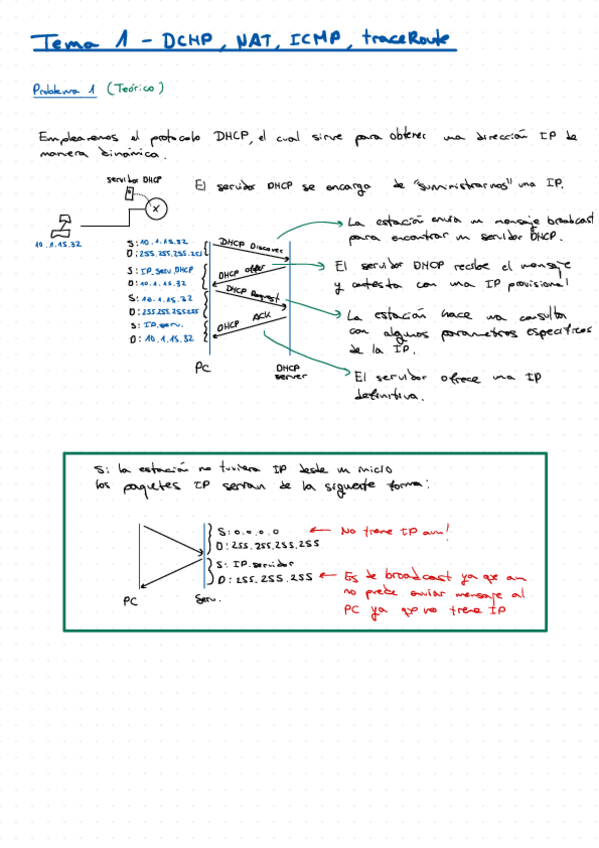 Tema 1 - DCHP, NAT, ICMP, traceRoute
Problema 1 (Teórico)
Emplearemos el protocolo DHCP, el cual sirve para obtener una dirección IP de
manera dinámica.
servidor DHCP
El servidor DHCP se encarga de "suministrarnos" una IP.
10.1.15.32
La estación envía un mensaje broadcast
para encontrar un servidor DHCP.
S: 10.1.15.32
D: 255.255.255.255
DHCP Discover
El servidor DHCP recibe el mensaje
y contesta con una IP provisional
S: IP.Serv.DHCP
D: 10.1.15.32
DHCP offer
S: 10.1.15.32
D: 255.255.255.255
DHCP Request
La estación hace una consulta
con algunos parametros especificos
de la IP.
S: IP.serv.
D: 10.1.15.32
DHCP ACK
El servidor ofrece una IP
definitiva.
PC
DHCP
server
Si la estación no tuviera IP desde un inicio
los paquetes IP serían de la siguiente forma:
S: 0.0.0.0
No tiene IP aun!
D: 255.255.255.255
S: IP.servidor
D: 255.255.255
Es de broadcast ya que aun
no puede enviar mensaje al
PC ya que no tiene IP
PC
Serv.